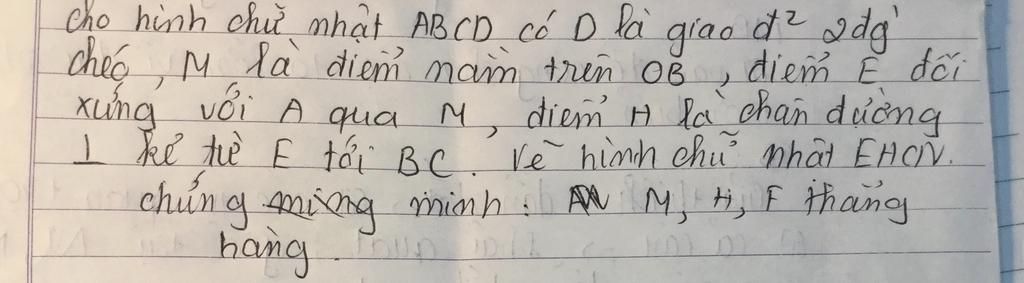 cho hình chữ nhật ABCD có D là giao đ² 2đg'
chéo, M là điểm nằm trên OB, điểm E đối
xứng với A qua M, điểm H là chân đường
⊥ kẻ từ E tới BC. Vẽ hình chữ nhật EHCN.
chứng minh: M, H, F thẳng
hàng.